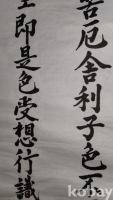 苦厄舎利子色不
即是色受想行識
kobay